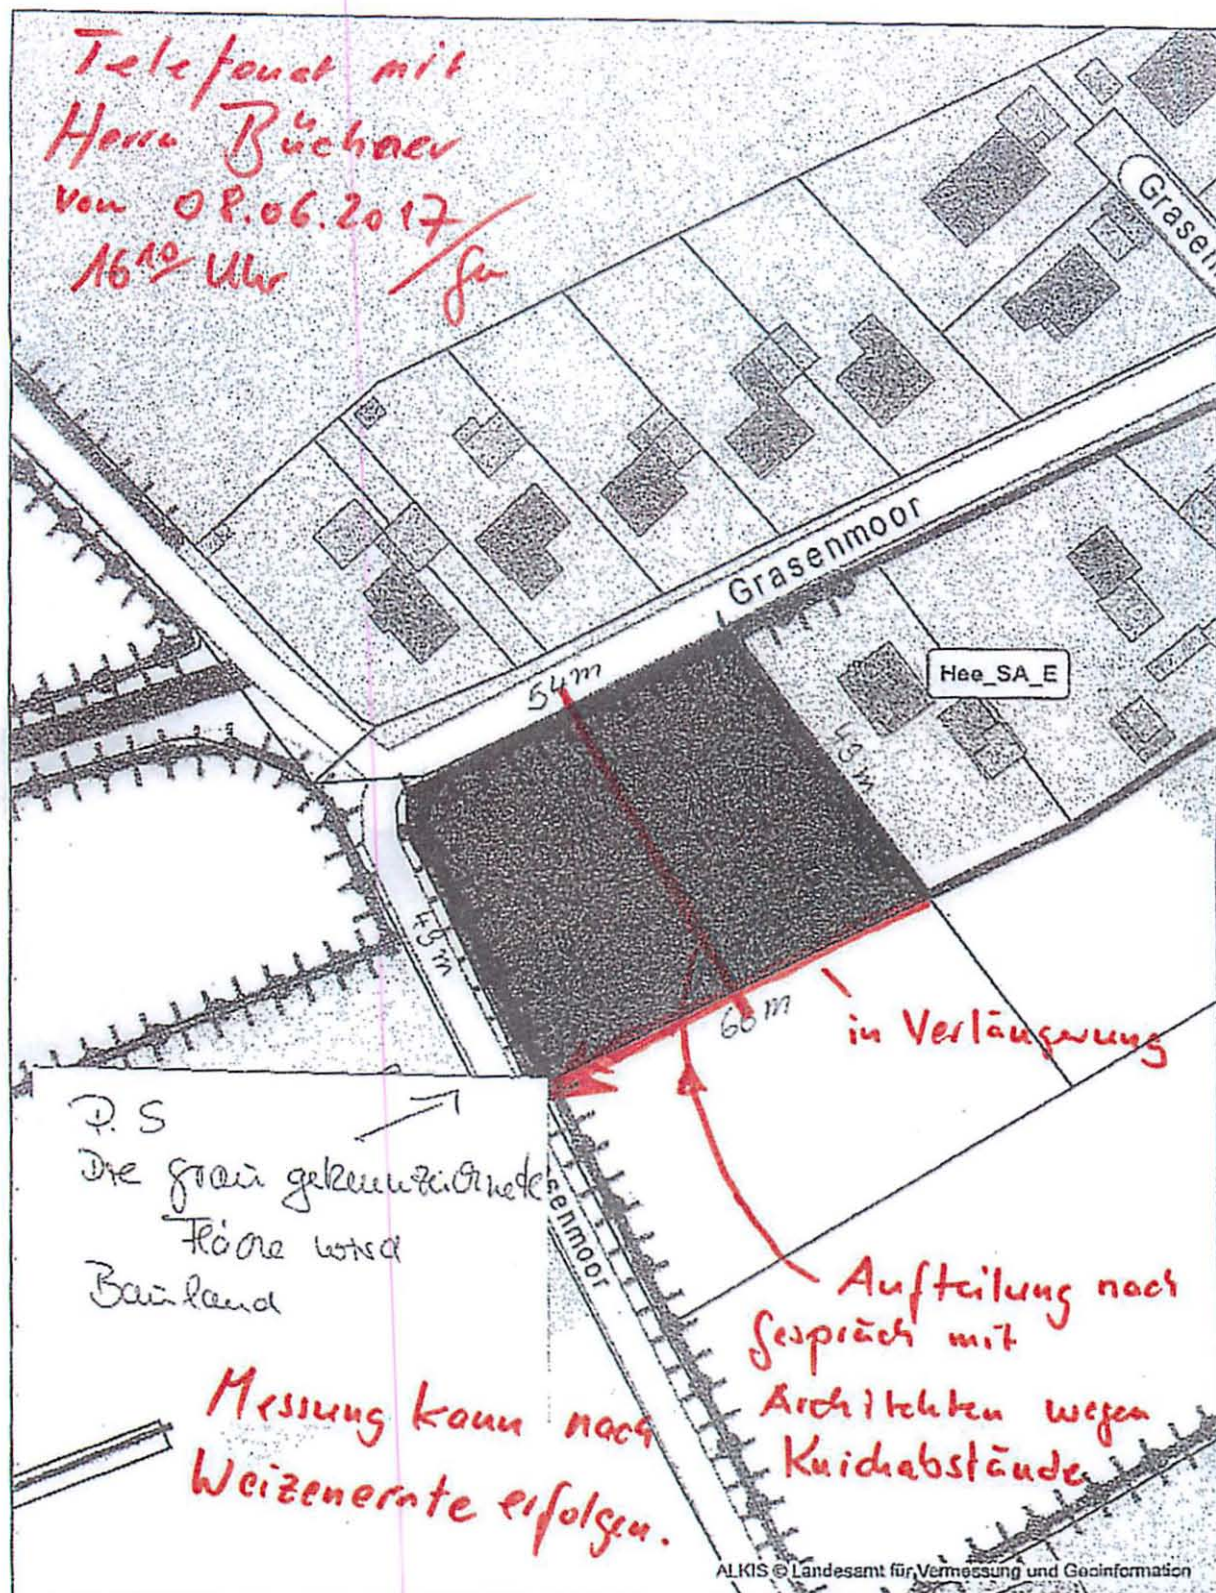 Telefonat mit
Herrn Büchner
vom 08.06.2017
16¹⁰ Uhr
Grasenm
Grasenmoor
Hee_SA_E
54m
49m
49m
66m
in Verlängerung
P.S
Die grau gekennzeichnete
Fläche wird
Bauland
senmoor
Aufteilung nach
Gespräch mit
Architekten wegen
Knickabstände
Messung kann nach
Weizenernte erfolgen.
ALKIS © Landesamt für Vermessung und Geoinformation